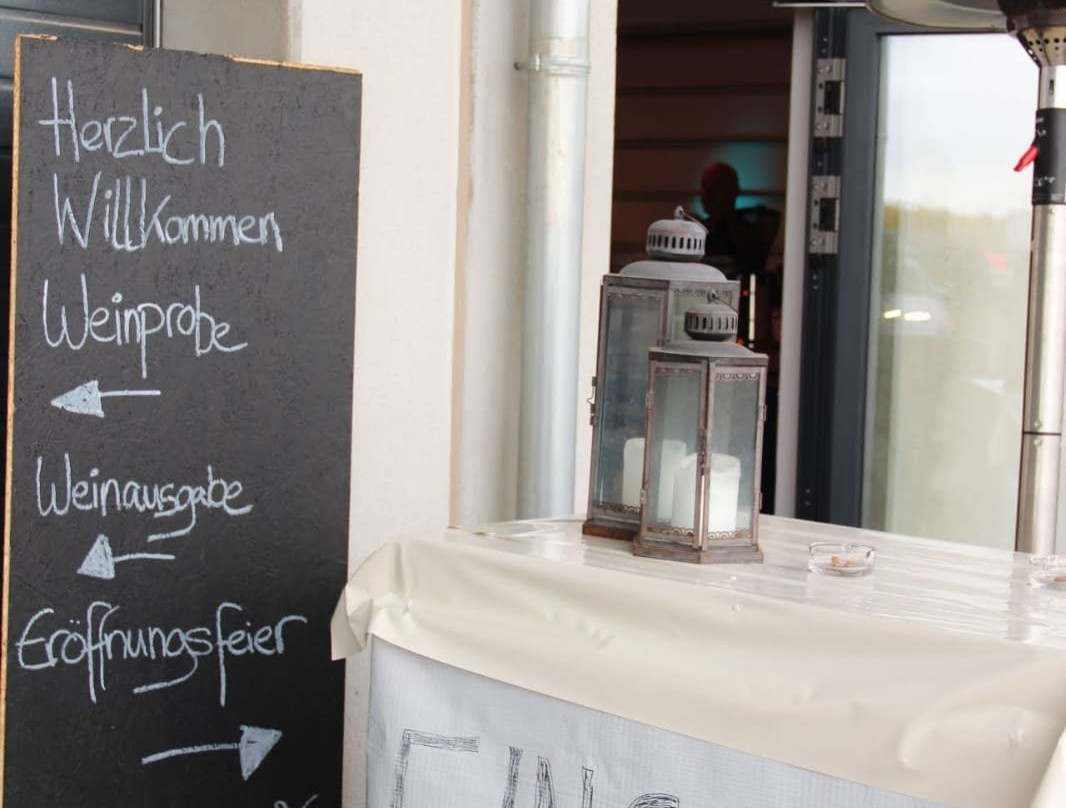 Herzlich
Willkommen
Weinprobe
Weinausgabe
Eröffnungsfeier